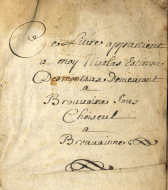 Ce Livre appartient
a moy Nicolas Estienne
Desmontaux Demeurant
a
Brouvainne Sous
Choiseul
a
Brouvainne